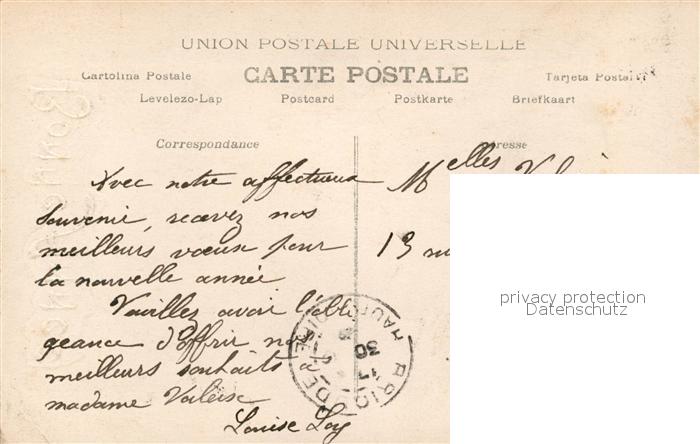 UNION POSTALE UNIVERSELLE
Cartolina Postale CARTE POSTALE Tarjeta Postal
Levelezo-Lap Postcard Postkarte Briefkaart
Correspondance
Avec notre affectueux
souvenir, recevez nos
meilleurs vœux pour
la nouvelle année.
Veuillez avoir l'obli
geance d'Offrir nos
meilleurs souhaits à
madame
Louise
Melles
13
BRIOUDE
HAUTE LOIRE
30
privacy protection
Datenschutz